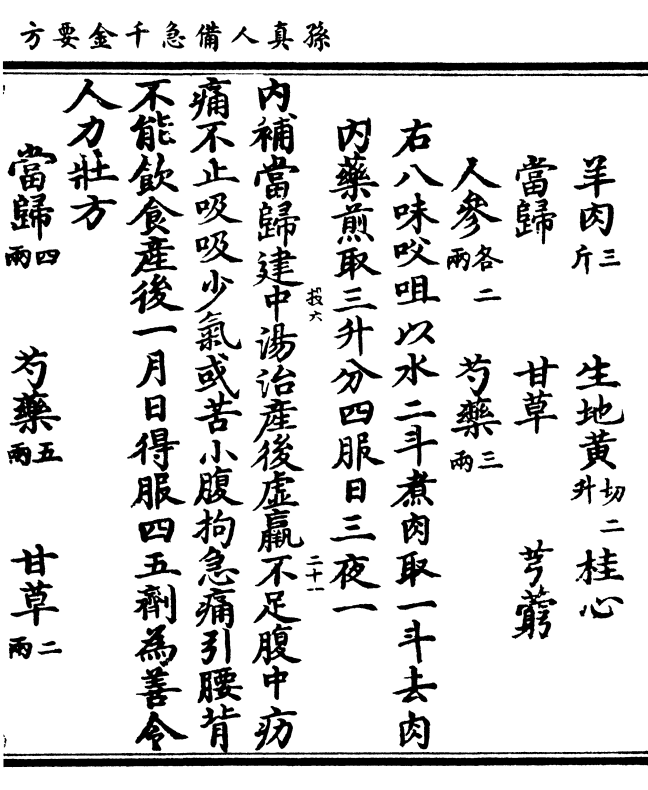 孫真人備急千金要方
羊肉三斤 生地黄切二升 桂心
當歸 甘草 芎藭
人參各二兩 芍藥三兩
右八味㕮咀以水二斗煮肉取一斗去肉
内藥煎取三升分四服日三夜一
投六 二十一
内補當歸建中湯治產後虛羸不足腹中疠
痛不止吸吸少氣或苦小腹拘急痛引腰背
不能飲食產後一月日得服四五劑為善令
人力壯方
當歸四兩 芍藥五兩 甘草二兩